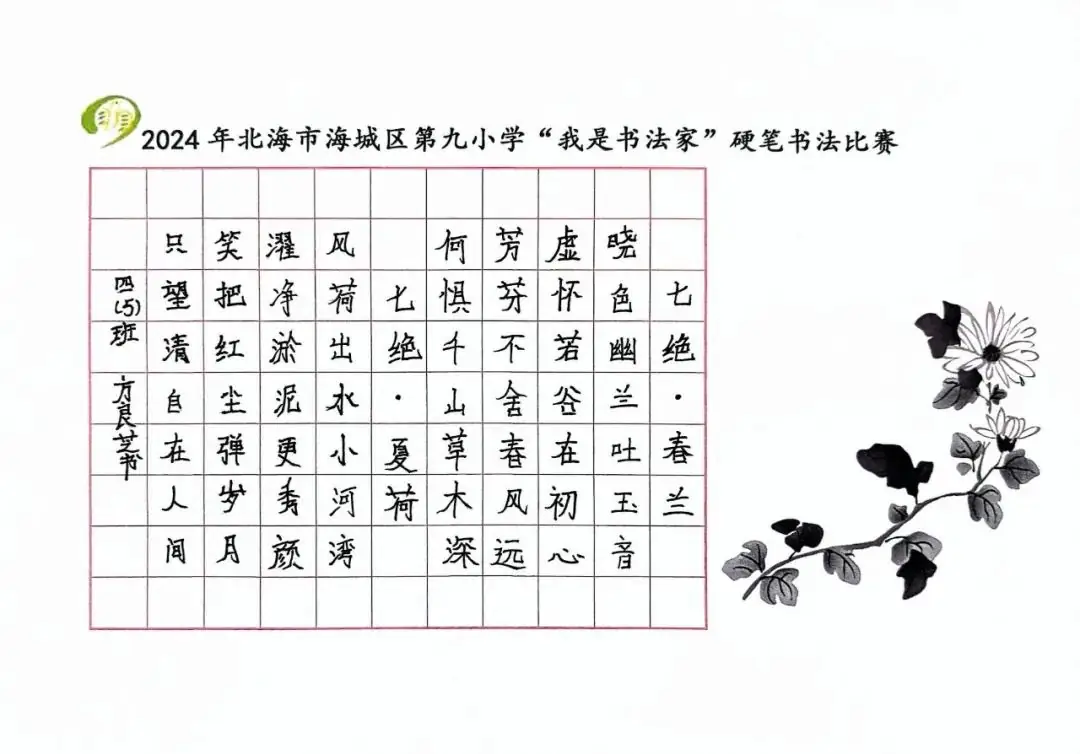 2024年北海市海城区第九小学“我是书法家”硬笔书法比赛
七绝·春兰
晓色幽兰吐玉音
虚怀若谷在初心
芳芬不舍春风远
何惧千山草木深
七绝·夏荷
风荷出水小河湾
濯净淤泥更秀颜
笑把红尘弹岁月
只望清自在人间
四(5)班 方良芝书